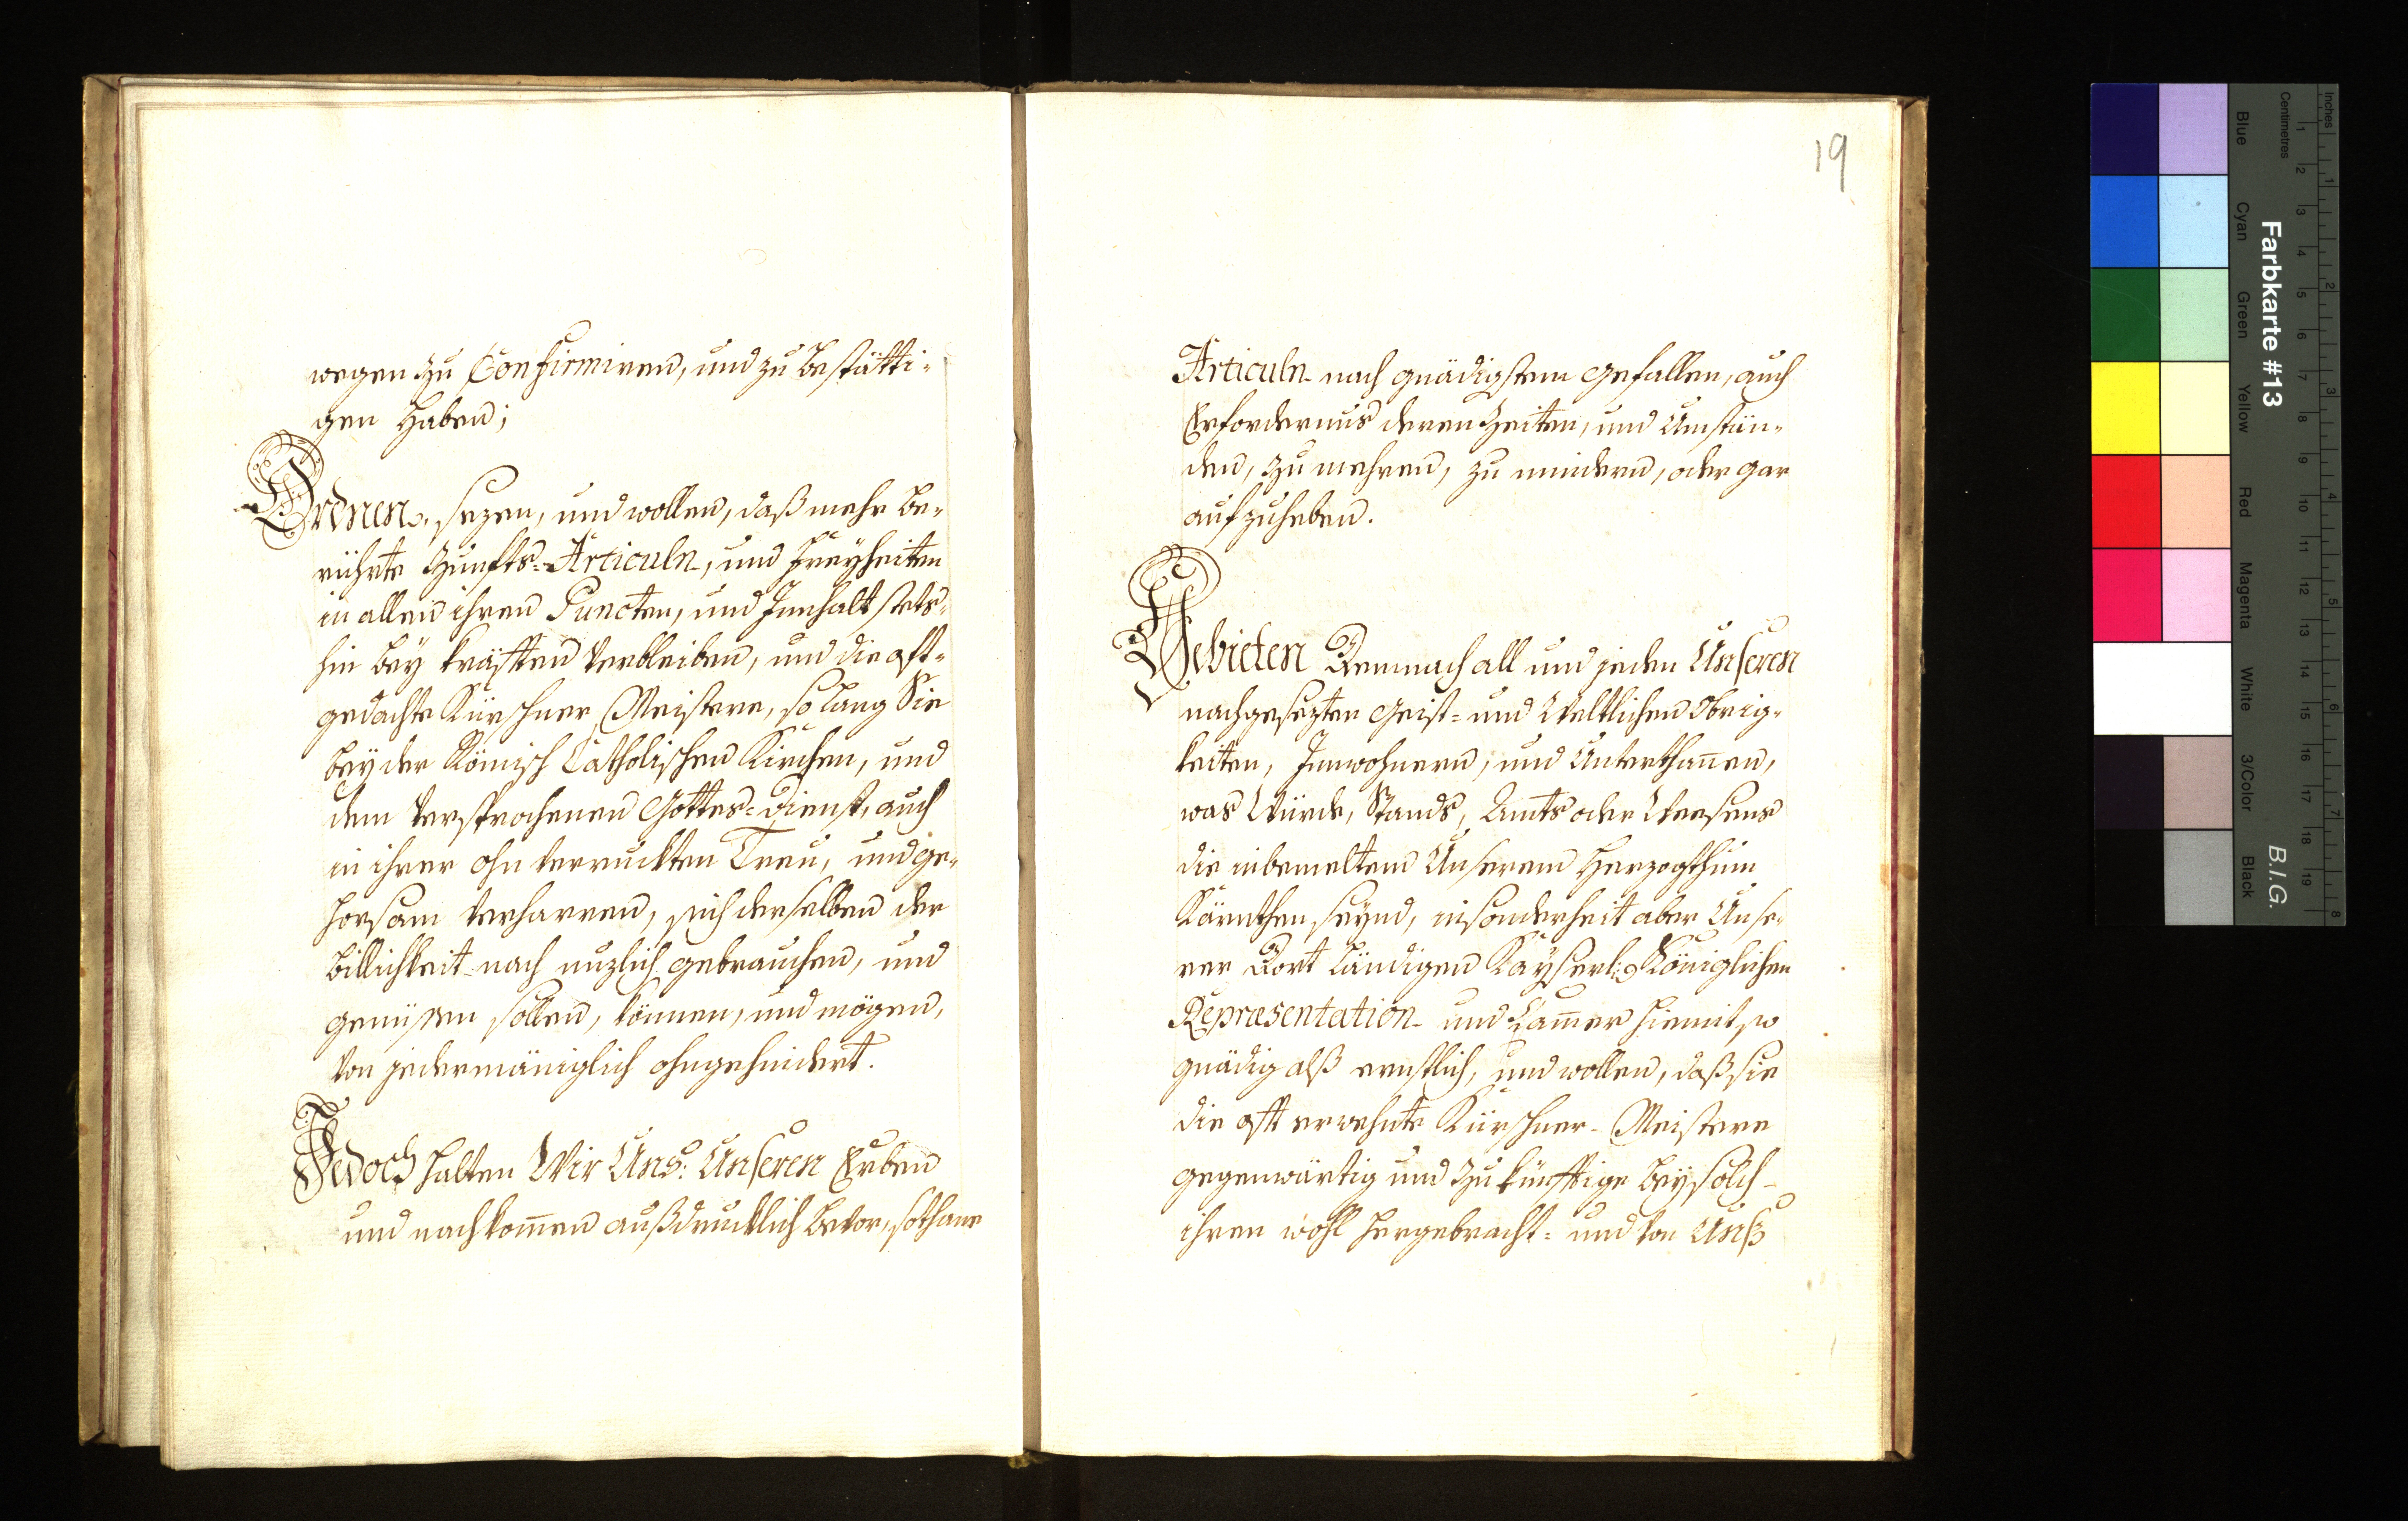 wegen zu Confirmiren, und zu bestätti-
gen haben;
Ordnen, sezen, und wollen, daß mehr be-
rührte Zunfts-Articuln, und Freyheiten
in allen ihren Puncten, und Innhalt stets-
hin bey kräfften verbleiben, und die oft-
gedachte Kürschner Meistere, so lang Sie
bey der Römisch Catholischen Kirchen, und
dem versprochenen Gottes-Dienst, auch
in ihrer ohn verruckten Treu, und ge-
horsam verharren, sich derselben der
billichkeit nach nuzlich gebrauchen, und
genüssen sollen, können, und mögen,
von jedermäniglich ohngehindert.
Jedoch halten Wir Uns: Unseren Erben
und nachkom̄en außdrucklich bevor, sothane
19
Articuln nach gnädigstem gefallen, auch
Erfordernus deren Zeiten, und Umstän-
den, zu mehren, zu mindern, oder gar
aufzuheben.
Gebieten Demnach all und jeden Unseren
nachgesezten Geist- und Weltlichen Obrig-
keiten, Innwohnern, und Unterthan̄en,
was Würde, Stands, Amts oder Weesens
die in bemeltem Unserem Herzogthum
Kärnthen seynd, insonderheit aber Unse-
rer Dort Ländigen Kayserl: Königlichen
Repræsentation und Cam̄er hiemit so
gnädig alß ernstlich, und wollen, daß sie
die offt erwehnte Kürschner-Meistere
gegenwärtig und zukünfftige bey solch-
ihren wohl hergebracht- und von Unß
Farbkarte #13
B.I.G.
Inches
Centimetres
Blue
Cyan
Green
Yellow
Red
Magenta
White
3/Color
Black